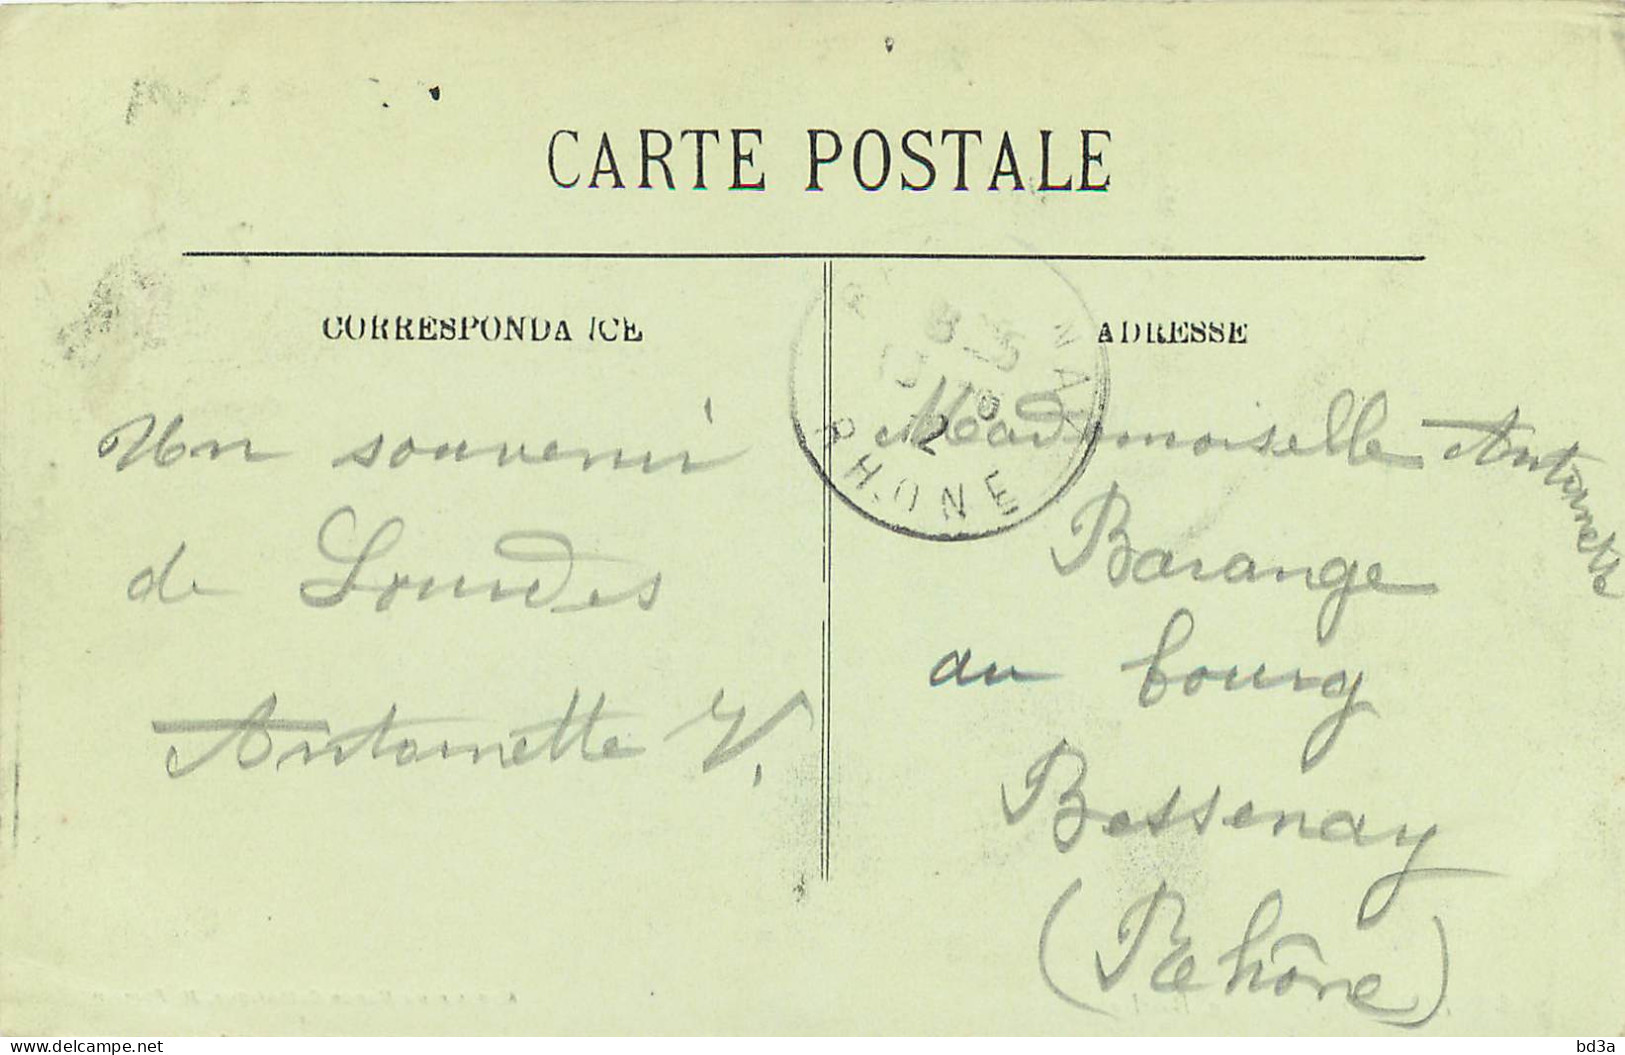 CARTE POSTALE
CORRESPONDANCE
ADRESSE
Un souvenir
de Lourdes
Antoinette V.
Mademoiselle Antoinette
Barange
au bourg
Bessenay
(Rhône)
RHONE
www.delcampe.net
bd3a